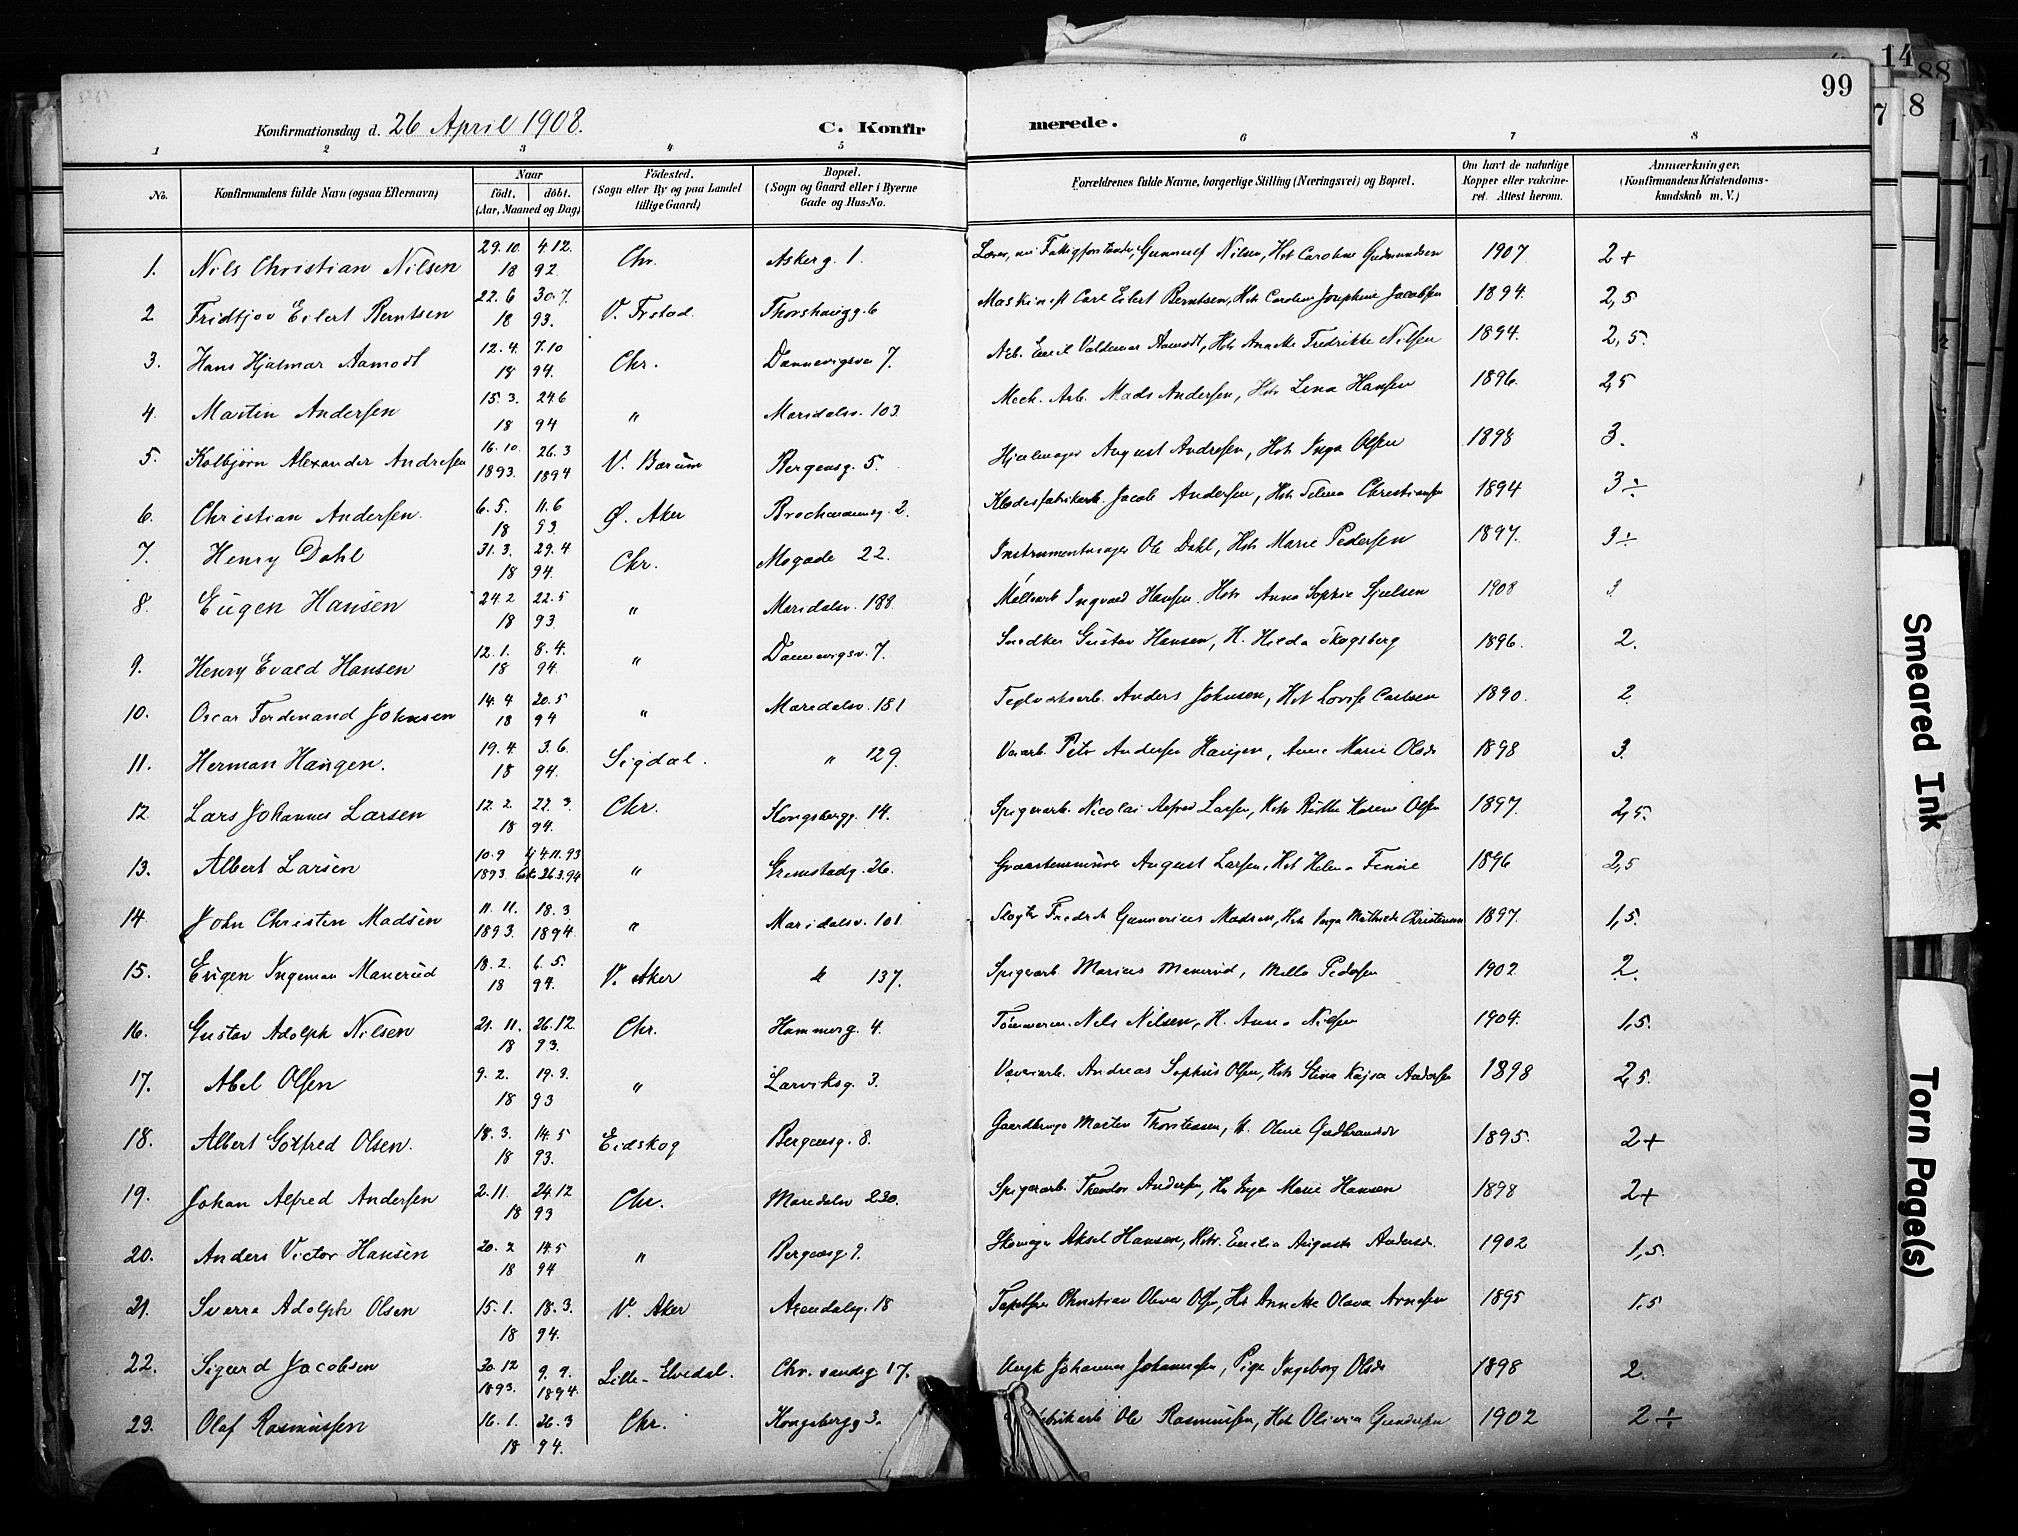 99
14
88
8
7
1
1
Konfirmationsdag d. 26 April 1908.
C. Konfirmerede.
1 2 3 4 5 6 7 8
No. Konfirmandens fulde Navn (ogsaa Efternavn) Naar født. døbt. (Aar, Maaned og Dag) Fødested. (Sogn eller By og paa Landet tillige Gaard) Bopæl. (Sogn og Gaard eller i Byerne Gade og Hus-No. Forældrenes fulde Navne, borgerlige Stilling (Næringsvei) og Bopæl. Om havt de naturlige Kopper eller vakcineret. Attest herom. Anmærkninger. (Konfirmandens Kristendomskundskab m. V.)
1. Nils Christian Nilsen 29.10. 4.12. 18 92. Chr. Askerg. 1. Gunnulf Nilsen, Hst Caroline Gudmundsen 1907 2+
2 Fridtjov Eilert Berntsen 22.6 30.7. 18 93. V. Frstad. Thorshaugg. 6 Maskinist Carl Eilert Berntsen, Hst Caroline Josephine Jacobsen 1894. 2,5
3. Hans Hjalmar Aamodt 12.4. 7.10 18 94. Chr. Dannevigsv. 7. Arb. Emil Valdemar Aamodt, Hst Annette Fredrikke Nilsen 1894. 2,5.
4. Martin Andersen 15.3. 24.6 18 94 " Maridalsv. 103. Mek. Arb. Mads Andersen, Hst Lena Hansen 1896. 2,5
5. Kolbjørn Alexander Andresen 16.10. 26.3 1893. 1894 V. Bærum Bergensg. 5. Hjulmager August Andresen, Hst Inga Olsen 1898 3.
6. Christian Andersen. 6.5. 11.6 18 93. Ø. Aker 2. Klædesfabrikarb. Jacob Andersen, Hst Telma Christiansen 1894 3÷
7. Henry Dahl 31.3. 29.4 18 94. Chr. Mogade 22. Instrumentmager Ole Dahl, Hst Marie Pedersen 1897. 3÷
8. Eugen Hansen 24.2 22.5 18 93. " Maridalsv. 188. Møllearb Ingvald Hansen. Hst Anna Sophie Sjulsen 1908 3
9. Henry Evald Hansen 12.1. 8.4. 18 94. " Dannevigsv. 7. Snedker Gustav Hansen, H. Hilda Skogsberg 1896. 2.
10. Oscar Ferdinand Johnsen 14.4 20.5 18 94 " Maridalsv. 181 Teglverksarb. Anders Johnsen, Hst Lovise Carlsen 1890. 2
11. Herman Haugen. 19.4. 3.6. 18 94. Sigdal. " 129. Peter Andersen Haugen, Anne Marie Olsdr 1898 3.
12. Lars Johannes Larsen 12.2. 22.3. 18 94. Chr. Kongsbergg. 14. Spigerarb. Nicolai Alfred Larsen, Hst Karen Olsen 1897. 2,5.
13. Albert Larsen 10.9 4.11.93 1893. 26.3.94 " Grimstadg. 26. Graastensmurer August Larsen, Hst Helena Finne 1896 2,5
14. John Christen Madsen 11.11. 18.3. 1893. 1894. " Maridalsv. 101 Fredrik Gunnerius Madsen, Hst Inga Mathilde Christensen 1897. 1,5.
15. Eugen Ingeman Manerud 18.2. 6.5. 18 94. V. Aker " 137. Spigerarb Marius Manerud, Milla Pedersen 1902 2.
16. Gustav Adolph Nilsen 21.11. 26.12. 18 93. Chr. Hammerg. 4. Nils Nilsen, H. Anna Nilsen 1904. 1,5.
17. Abel Olsen 9.2. 19.3. 18 93 " Larviksg. 3. Væveriarb. Andreas Sophus Olsen, Hst Stina Kajsa Andersen 1898 2,5.
18. Albert Gotfred Olsen. 18.3. 14.5 18 93. Eidskog Bergensg. 8. Gaardbruger Morten Thorstensen, H. Oline Gudbrandsdr 1895. 2+
19. Johan Alfred Andersen 2.11. 24.12 18 93 Chr. Maridalsv 230. Spigerarb. Theodor Andersen, Hst Inga Marie Hansen 1898 2+
20. Anders Victor Hansen 20.2 14.5 18 94 " Bergensg. 9. Skomager Aksel Hansen, Hst. Emilia Augusta Andersdr. 1902 1,5.
21. Sverre Adolph Olsen 15.1. 18.3. 18 94. V. Aker Arendalsg. 18 Christian Oliver Olsen, Hst Annette Olava Arnesen 1895 1,5
22. Sigurd Jacobsen 30.12 9.9. 1893. 1894. Lille-Elvedal. Chr.sandsg 17. Ungk Johannes Johannesen, Pige Ingeborg Olsdr 1898 2.
23. Olaf Rasmussen 16.1. 26.3 18 94. Chr. Kongsbergg 3. Ole Rasmussen, Hst Olivia Gundersen 1902 2÷
Smeared Ink
Torn Page(s)